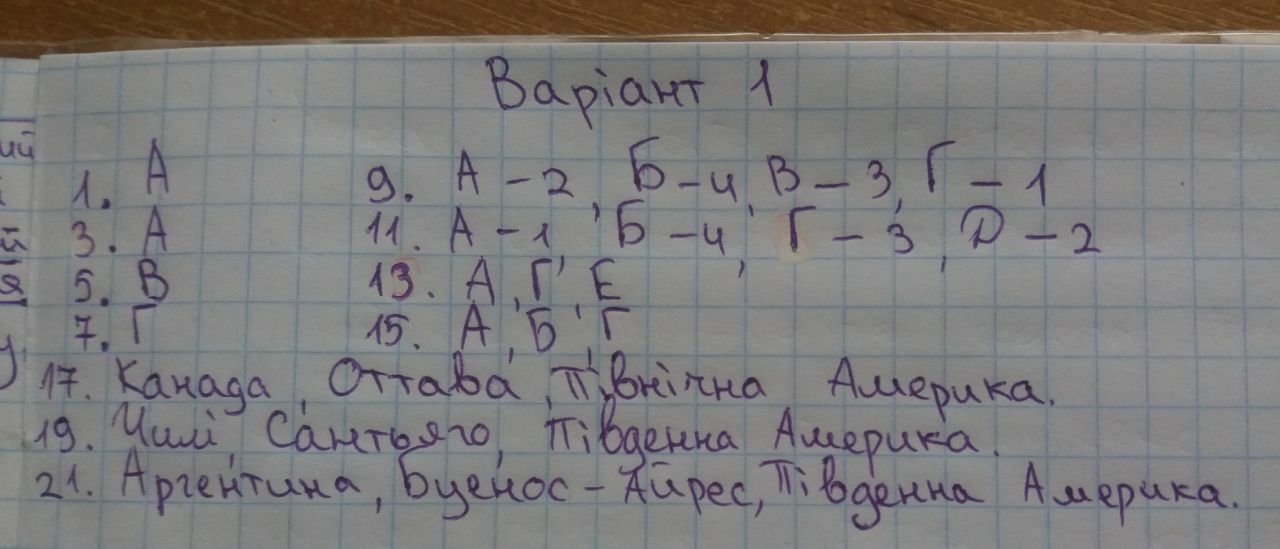 Варіант 1
1. А 9. А - 2, Б - 4, В - 3, Г - 1
3. А 11. А - 1, Б - 4, Г - 3, Д - 2
5. В 13. А, Г, Е
7. Г 15. А, Б, Г
17. Канада, Оттава, Північна Америка.
19. Чилі, Сантьяго, Південна Америка.
21. Аргентина, Буенос - Айрес, Південна Америка.